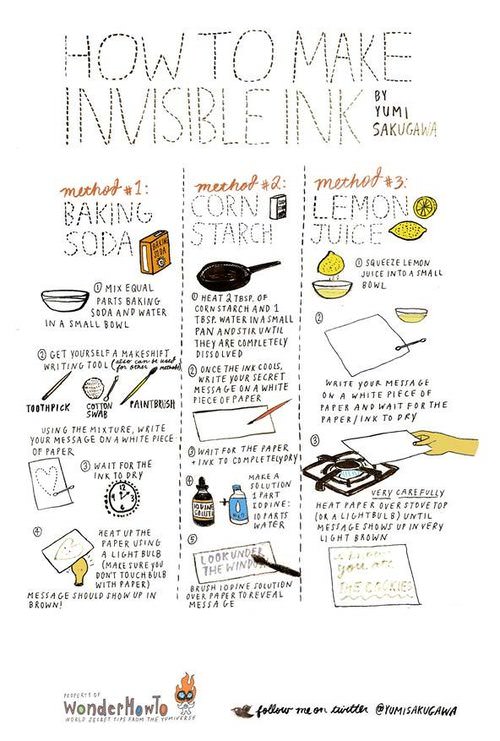 HOW TO MAKE
INVISIBLE INK
BY
YUMI
SAKUGAWA
method #1:
BAKING
SODA
BAKING
SODA
① MIX EQUAL
PARTS BAKING
SODA AND WATER
IN A SMALL BOWL
② GET YOURSELF A MAKESHIFT
WRITING TOOL (also can be used
for other methods)
TOOTHPICK
COTTON
SWAB
PAINTBRUSH
USING THE MIXTURE, WRITE
YOUR MESSAGE ON A WHITE PIECE
OF PAPER
③ WAIT FOR THE
INK TO DRY
④ HEAT UP THE
PAPER USING
A LIGHT BULB
(MAKE SURE YOU
DON'T TOUCH BULB
WITH PAPER)
MESSAGE SHOULD SHOW UP IN
BROWN!
method #2:
CORN
STARCH
① HEAT 2 TBSP. OF
CORN STARCH AND 1
TBSP. WATER IN A SMALL
PAN AND STIR UNTIL
THEY ARE COMPLETELY
DISSOLVED
② ONCE THE INK COOLS,
WRITE YOUR SECRET
MESSAGE ON A WHITE
PIECE OF PAPER
③ WAIT FOR THE PAPER
+ INK TO COMPLETELY DRY
④ MAKE A
SOLUTION
1 PART
IODINE:
10 PARTS
WATER
IODINE
+
⑤
LOOK UNDER
THE WINDOW
BRUSH IODINE SOLUTION
OVER PAPER TO REVEAL
MESSAGE
method #3:
LEMON
JUICE
① SQUEEZE LEMON
JUICE INTO A SMALL
BOWL
②
WRITE YOUR MESSAGE
ON A WHITE PIECE OF
PAPER AND WAIT FOR THE
PAPER/INK TO DRY
③
VERY CAREFULLY
HEAT PAPER OVER STOVE TOP
(OR A LIGHTBULB) UNTIL
MESSAGE SHOWS UP IN VERY
LIGHT BROWN
you are
THE COOKIES
PROPERTY OF
WonderHowTo
WORLD SECRET TIPS FROM THE YUMIVERSE
follow me on twitter @YUMISAKUGAWA